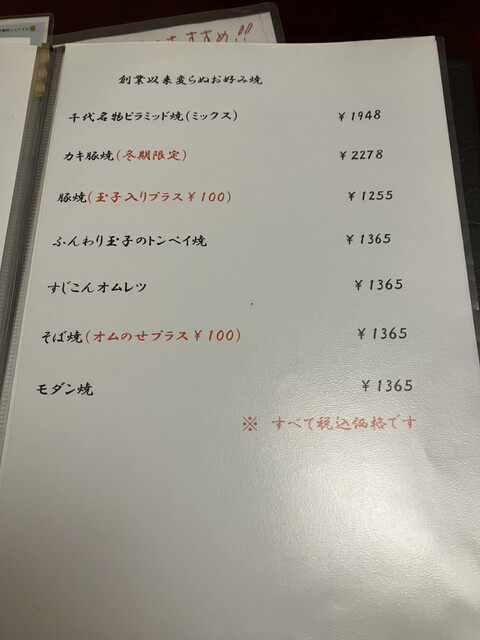 すすめ!!
創業以来変らぬお好み焼
千代名物ピラミッド焼(ミックス) ¥1948
カキ豚焼(冬期限定) ¥2278
豚焼(玉子入りプラス¥100) ¥1255
ふんわり玉子のトンペイ焼 ¥1365
すじこんオムレツ ¥1365
そば焼(オムのせプラス¥100) ¥1365
モダン焼 ¥1365
※ すべて税込価格です